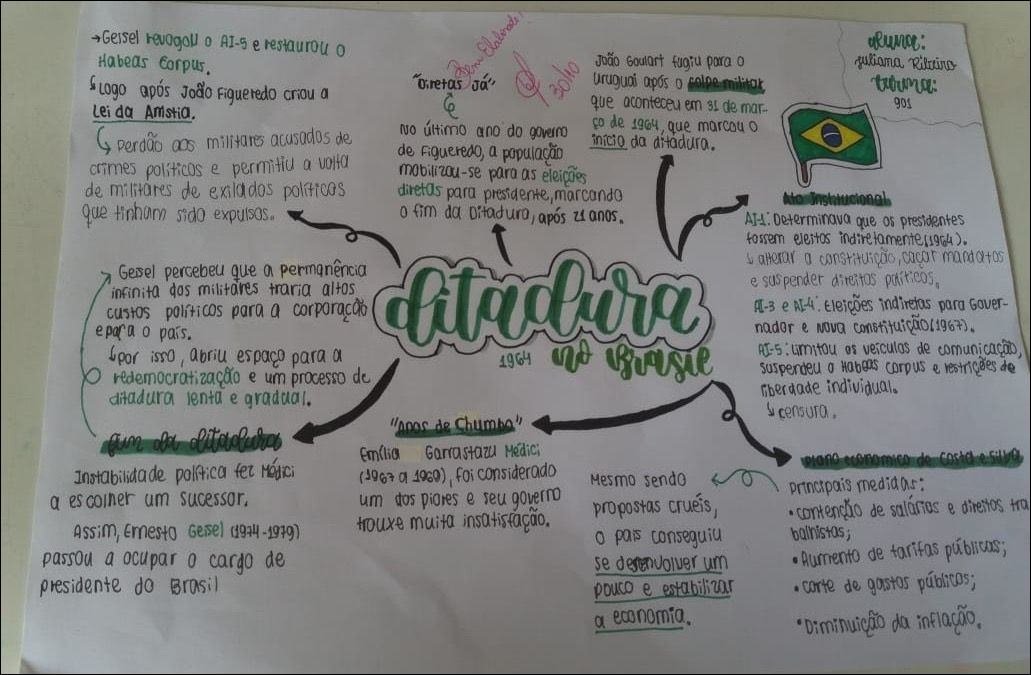 →Geisel revogou o AI-5 e restaurou o
Habeas Corpus.
↳Logo após João Figueredo criou a
Lei da Anistia.
↳ Perdão aos militares acusados de
crimes políticos e permitiu a volta
de militares de exilados políticos
que tinham sido expulsos.
"Diretas Já"
Bem Elaborado!
30/10
No último ano do governo
de Figueredo, a população
mobilizou-se para as eleições
diretas para presidente, marcando
o fim da Ditadura, após 21 anos.
João Goulart fugiu para o
Uruguai após o golpe militar
que aconteceu em 31 de mar-
ço de 1964, que marcou o
início da ditadura.
Aluna:
Juliana Ribeiro
Turma:
901
Ato Institucional
AI-1: Determinava que os presidentes
fossem eleitos indiretamente(1964).
↳ alterar a constituição, caçar mandatos
e suspender direitos políticos.
AI-3 e AI-4: Eleições indiretas para Gover-
nador e Nova constituição(1967).
AI-5: Limitou os veículos de comunicação,
suspendeu o Habeas corpus e restrições de
liberdade individual.
↳ censura.
ditadura
1964 no Brasil
Geisel percebeu que a permanência
infinita dos militares traria altos
custos políticos para a corporação
e para o país.
↳por isso, abriu espaço para a
redemocratização e um processo de
ditadura lenta e gradual.
fim da ditadura
Instabilidade política fez Médici
a escolher um sucessor.
Assim, Ernesto Geisel (1974-1979)
passou a ocupar o cargo de
presidente do Brasil
"Anos de Chumbo"
Emília Garrastazu Médici
(1967 a 1969), foi considerado
um dos piores e seu governo
trouxe muita insatisfação.
Mesmo sendo
propostas cruéis,
o país conseguiu
se desenvolver um
pouco e estabilizar
a economia.
plano econômico de Costa e Silva
principais medidas:
•contenção de salários e direitos tra
balhistas;
•Aumento de tarifas públicas;
•corte de gastos públicos;
•Diminuição da inflação.